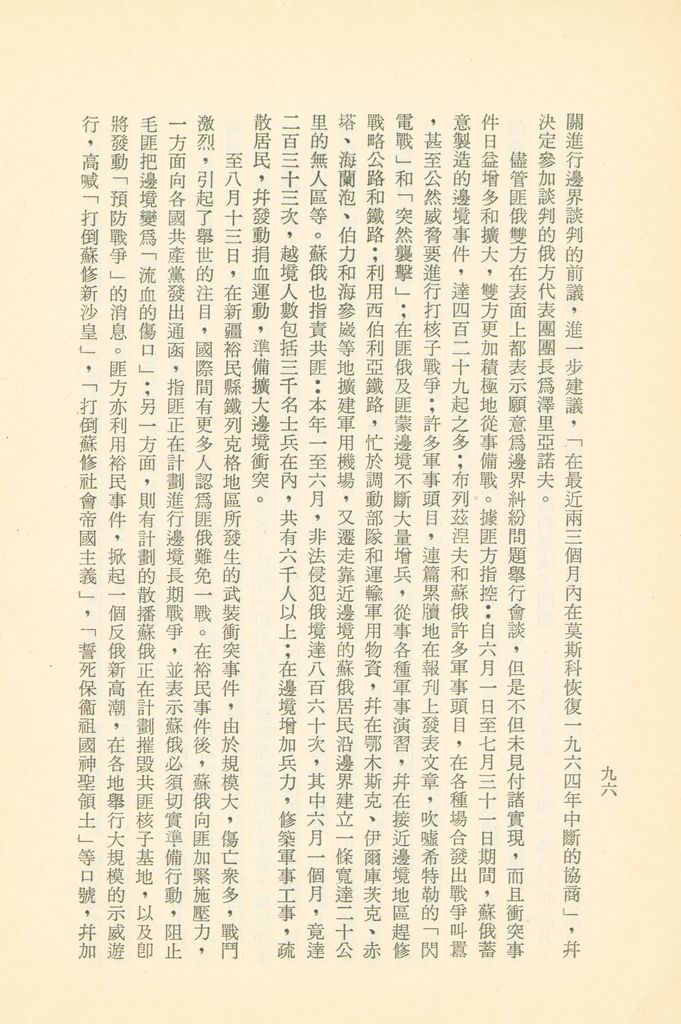 九六
關進行邊界談判的前議，進一步建議，「在最近兩三個月內在莫斯科恢復一九六四年中斷的協商」，幷
決定參加談判的俄方代表團團長爲澤里亞諾夫。
儘管匪俄雙方在表面上都表示願意爲邊界糾紛問題舉行會談，但是不但未見付諸實現，而且衝突事
件日益增多和擴大，雙方更加積極地從事備戰。據匪方指控：自六月一日至七月三十一日期間，蘇俄蓄
意製造的邊境事件，達四百二十九起之多；布列茲湼夫和蘇俄許多軍事頭目，在各種場合發出戰爭叫囂
，甚至公然威脅要進行打核子戰爭；許多軍事頭目，連篇累牘地在報刋上發表文章，吹噓希特勒的「閃
電戰」和「突然襲擊」；在匪俄及匪蒙邊境不斷大量增兵，從事各種軍事演習，幷在接近邊境地區趕修
戰略公路和鐵路；利用西伯利亞鐵路，忙於調動部隊和運輸軍用物資，幷在鄂木斯克、伊爾庫茨克、赤
塔、海蘭泡、伯力和海參崴等地擴建軍用機場，又遷走靠近邊境的蘇俄居民沿邊界建立一條寬達二十公
里的無人區等。蘇俄也指責共匪：本年一至六月，非法侵犯俄境達八百六十次，其中六月一個月，竟達
二百三十三次，越境人數包括三千名士兵在內，共有六千人以上；在邊境增加兵力，修築軍事工事，疏
散居民，幷發動捐血運動，準備擴大邊境衝突。
至八月十三日，在新疆裕民縣鐵列克格地區所發生的武裝衝突事件，由於規模大，傷亡衆多，戰鬥
激烈，引起了舉世的注目，國際間有更多人認爲匪俄難免一戰。在裕民事件後，蘇俄向匪加緊施壓力，
一方面向各國共產黨發出通函，指匪正在計劃進行邊境長期戰爭，並表示蘇俄必須切實準備行動，阻止
毛匪把邊境變爲「流血的傷口」；另一方面，則有計劃的散播蘇俄正在計劃摧毀共匪核子基地，以及卽
將發動「預防戰爭」的消息。匪方亦利用裕民事件，掀起一個反俄新高潮，在各地舉行大規模的示威遊
行，高喊「打倒蘇修新沙皇」，「打倒蘇修社會帝國主義」，「誓死保衞祖國神聖領土」等口號，幷加